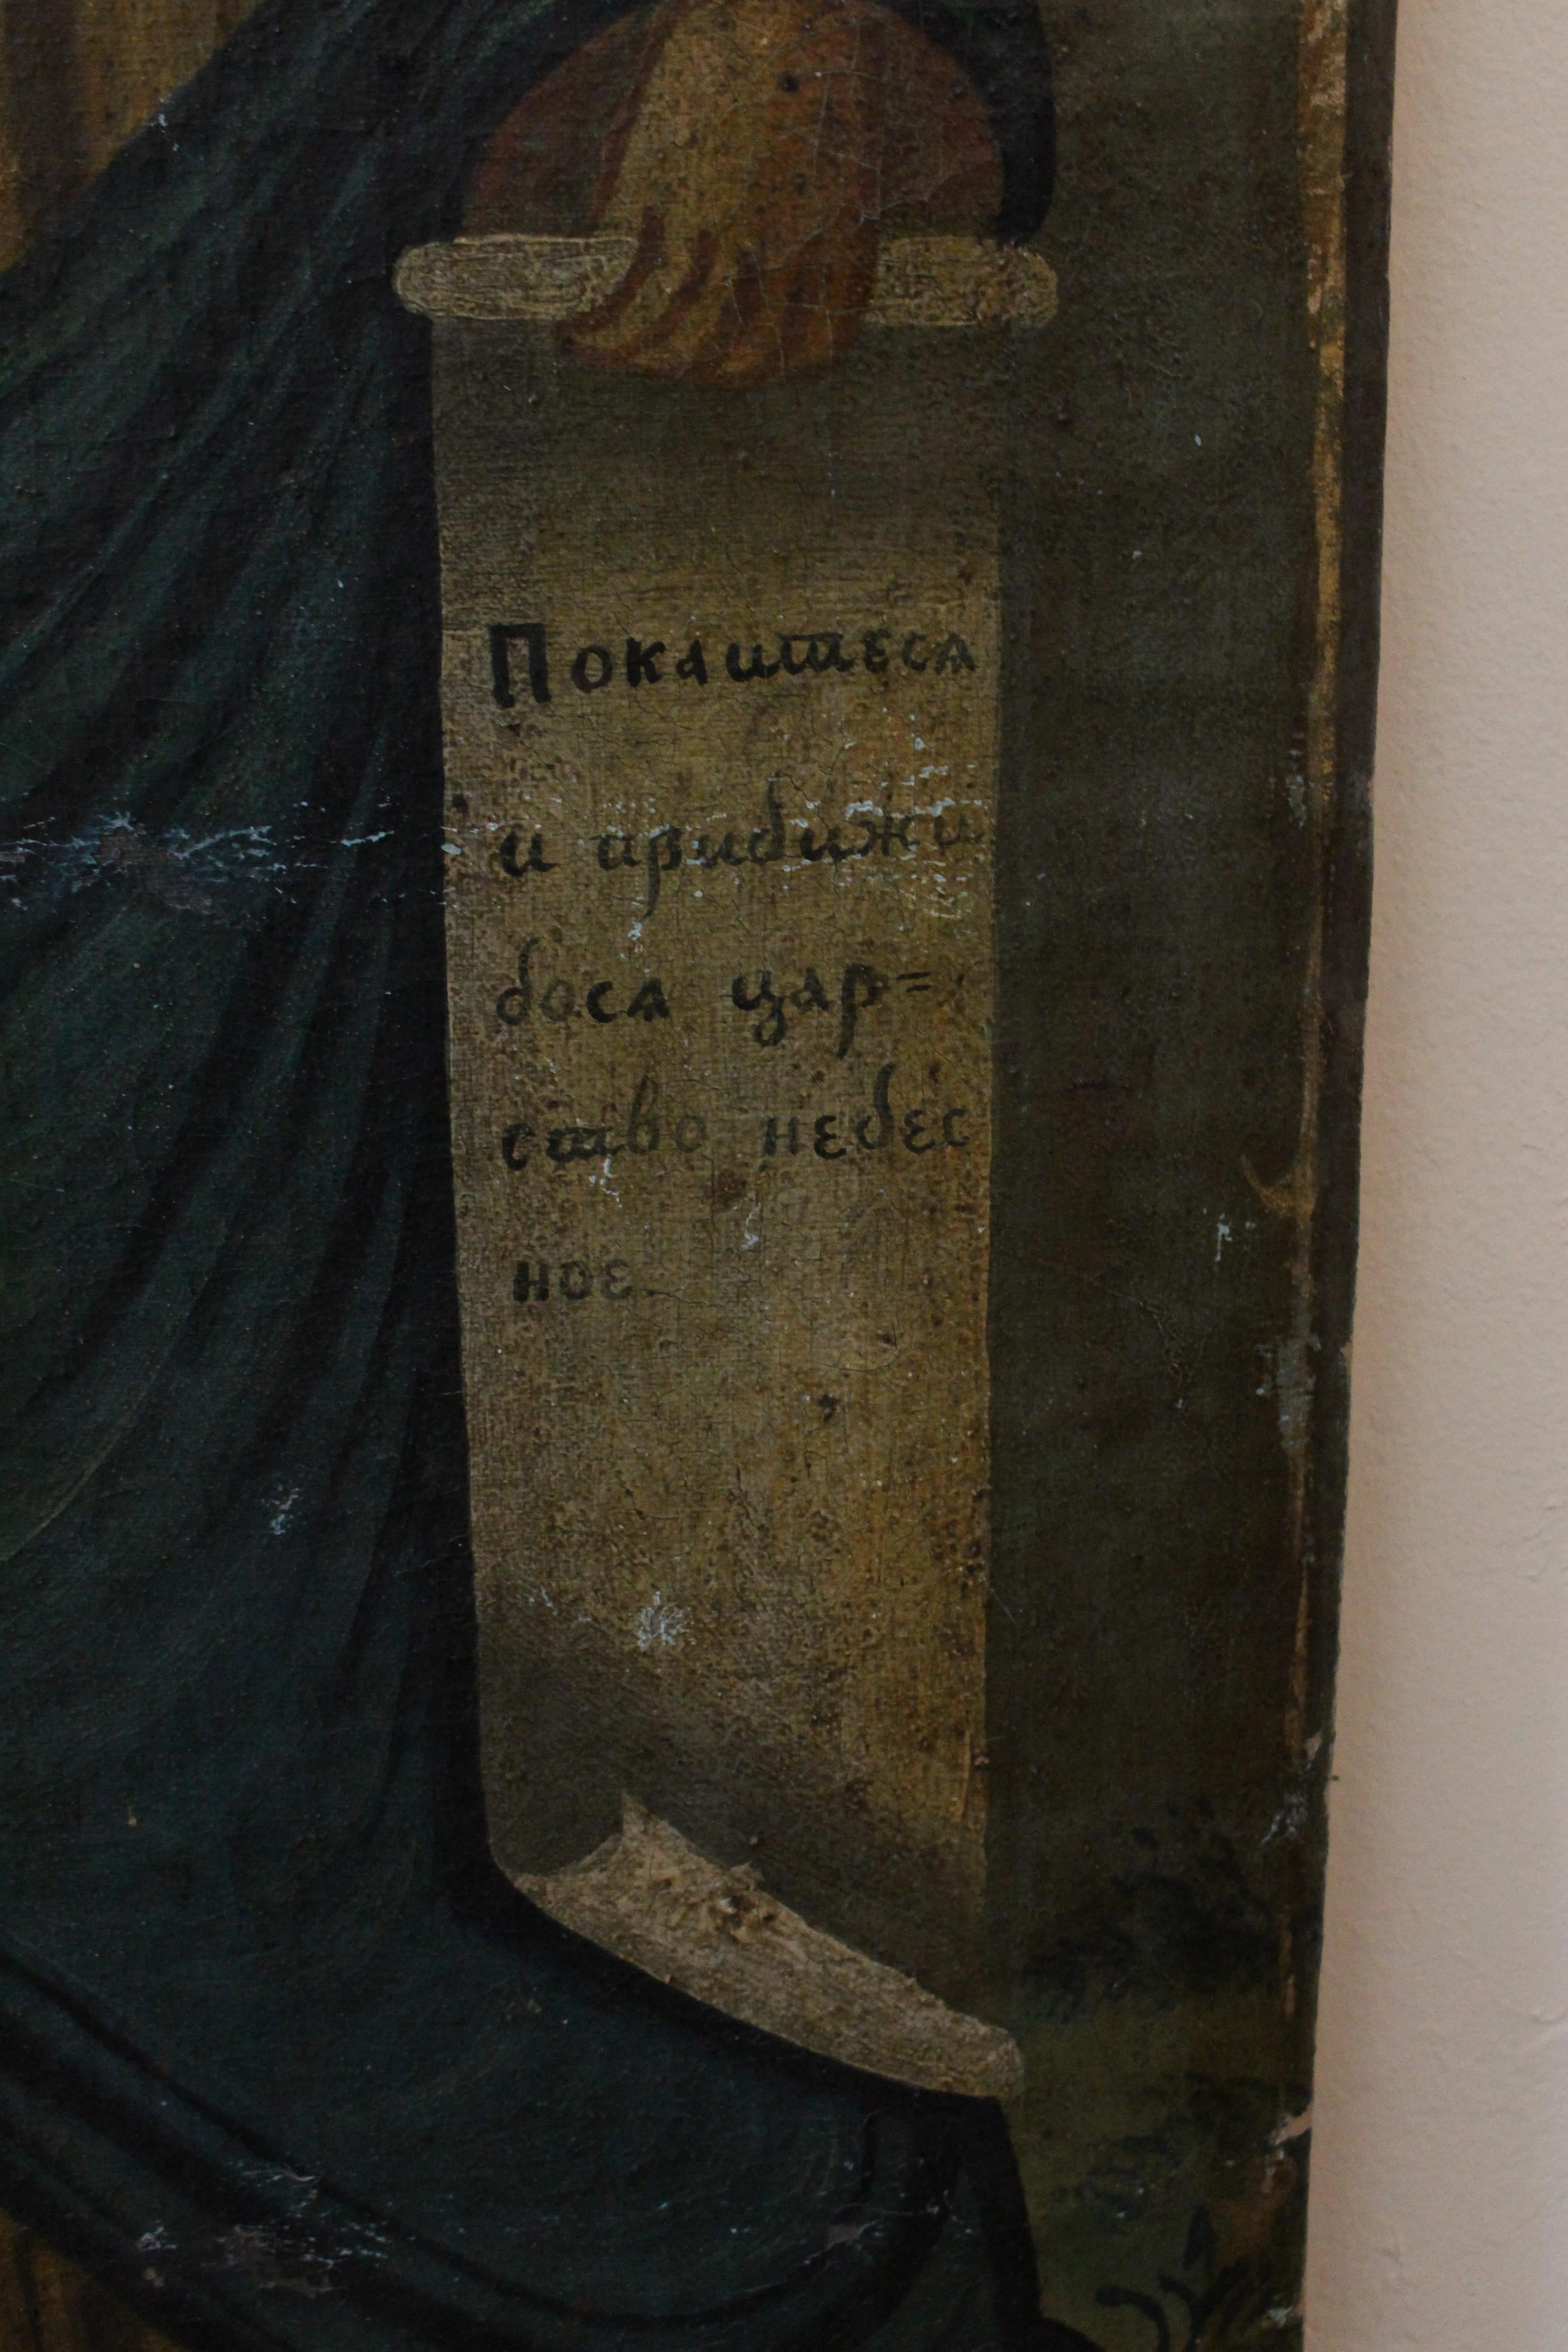 Покаитеса
и прибижи
боса цар=
ство небес
ное.